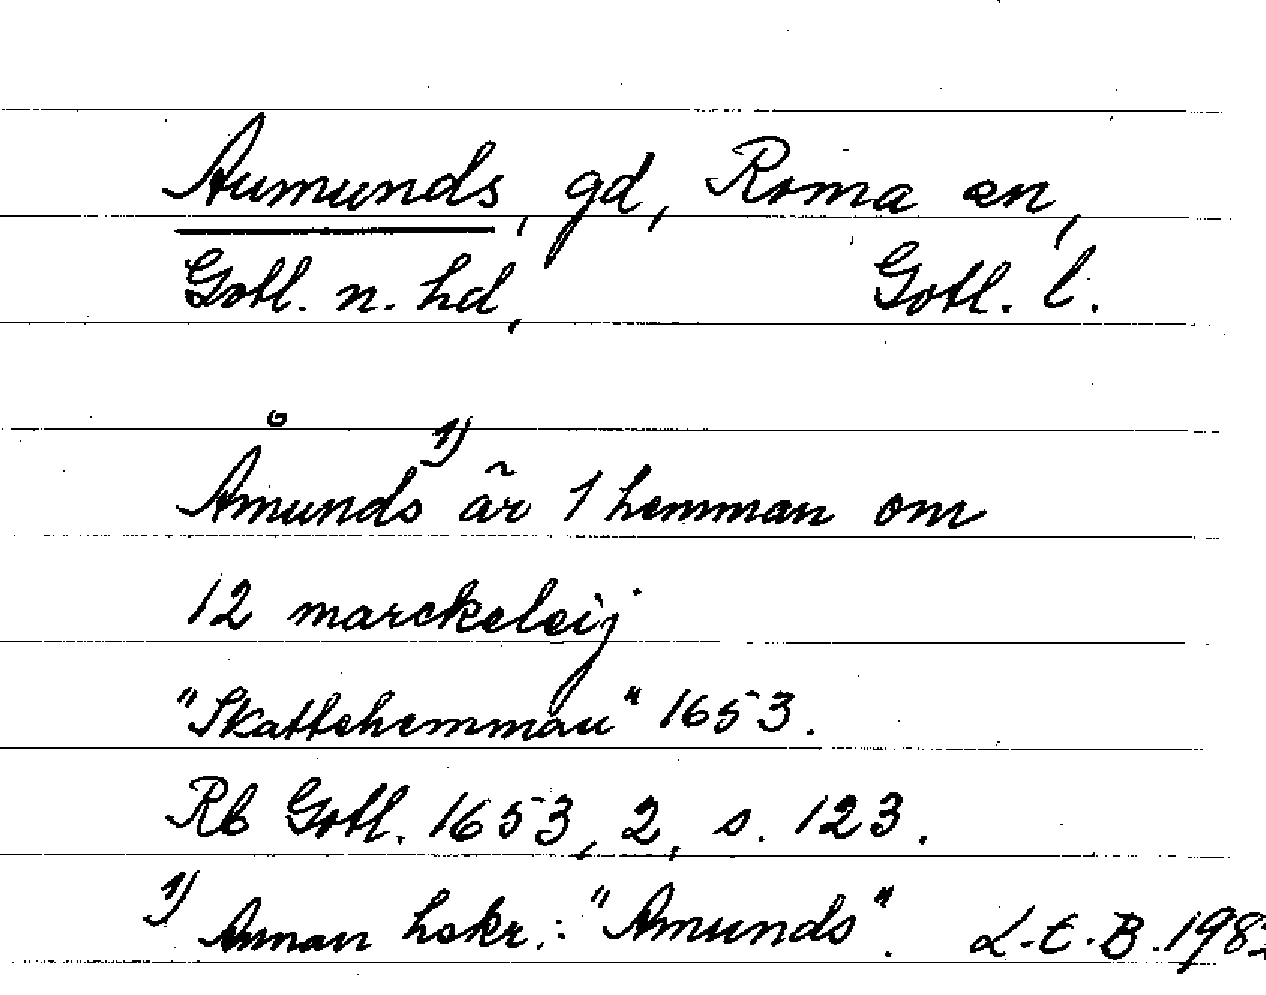 Aumunds, gd, Roma sn,
Gotl. n. hd, Gotl. l.
Åmunds 1) är 1 hemman om
12 marckeleij
"Skattehemman" 1653.
Rb Gotl. 1653, 2, s. 123.
1) Annan hskr.: "Amunds". L.E.B.